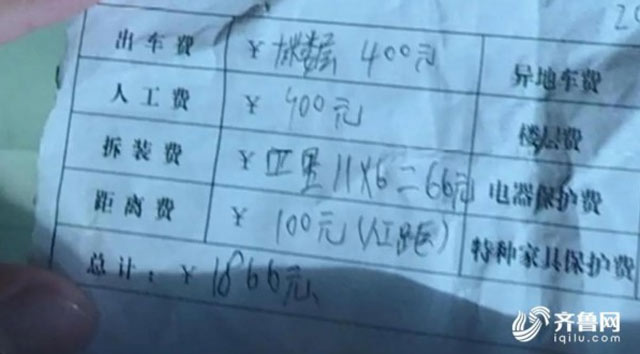 20
出车费 ¥ 400元 异地车费
人工费 ¥ 400元 楼层费
拆装费 ¥ 公里11X6=66元 电器保护费
距离费 ¥ 100元(人工距) 特种家具保护费
总计: ¥ 1866元
齐鲁网
iqilu.com